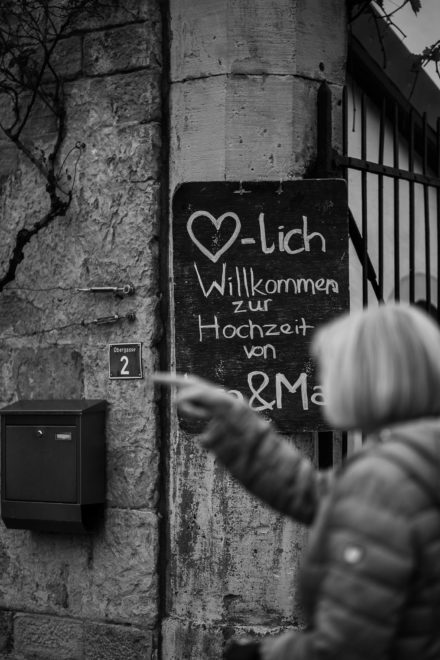 ♥-lich
Willkommen
zur
Hochzeit
von
&
Obergasse
2